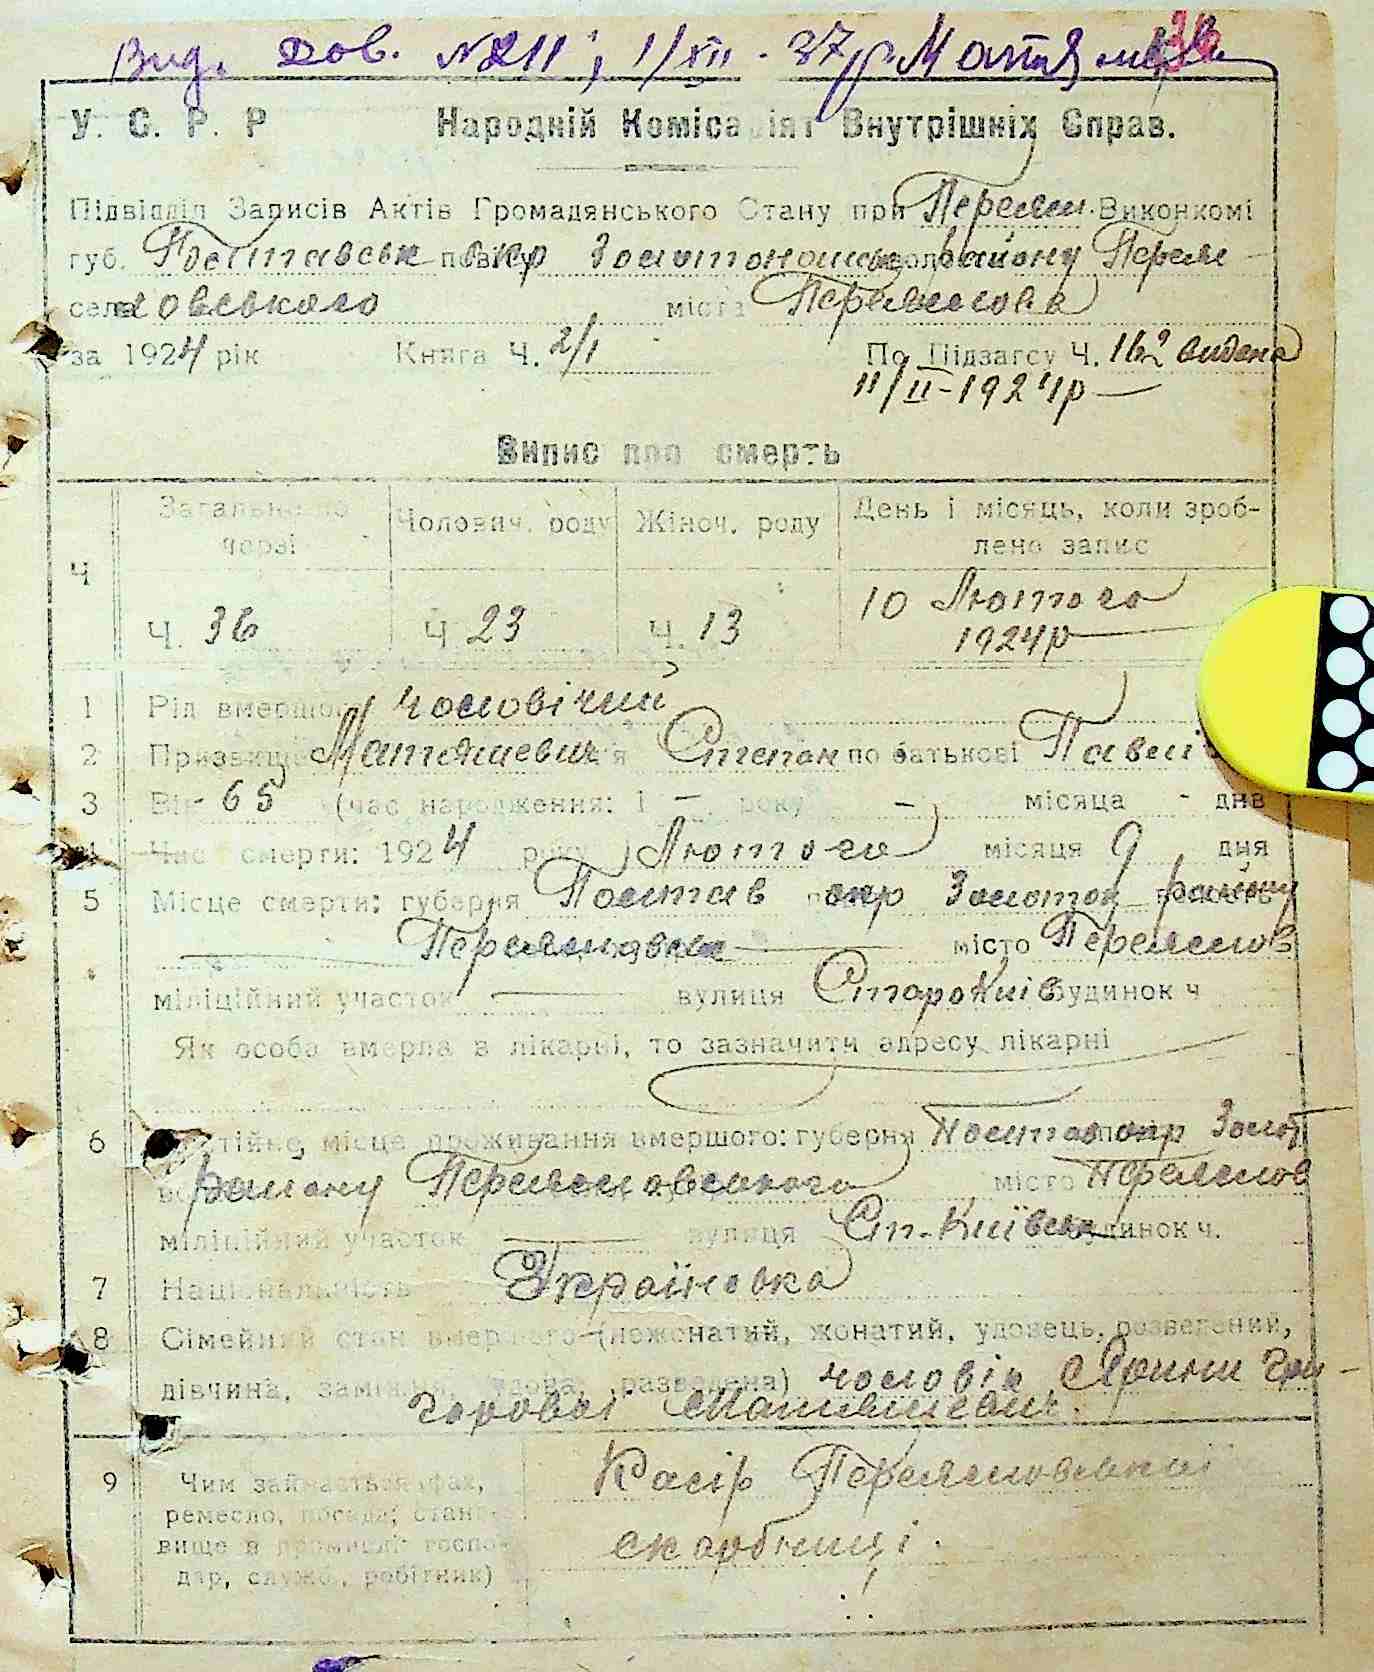 Вид. Дов. №211; 1/XII - 37р
36
У. С. Р. Р Народній Комісаріят Внутрішніх Справ.
Підвідділ Записів Актів Громадянського Стану при Переясл. Виконкомі
губ. Полтавськ окр Золотоноськ району Переясл
села овського міста Переяслова
за 1924 рік Книга Ч. 2/1 По Підзагсу Ч. 162 видана
11/II-1924р
Випис про смерть
Ч Загальна по черзі Чоловіч. роду Жіноч. роду День і місяць, коли зроблено запис
Ч. 36 Ч 23 Ч. 13 10 Лютого
1924р
1 Рід вмершого Чоловічий
2 Призвище Матяшевич Степан по батькові Павлів
3 Вік 65 (час народження: 1 - року - місяца - дня
4 Час смерти: 1924 року Лютого місяця 9 дня
5 Місце смерти: губерня Полтав окр Золотон району
Переяславськ місто Переяслов
міліційний участок вулиця СтароКиїв будинок ч
Як особа вмерла в лікарні, то зазначити адресу лікарні
6 Постійне місце проживання вмершого: губерня Полтав окр Золот
району Переясловського місто Переяслов
міліційний участок вулиця Ст.-Київськ будинок ч.
7 Національність Українська
8 Сімейний стан вмершого (нежонатий, жонатий, удовець, розведений,
дівчина, заміжня, удова, разведена) чоловік Ярини Гри-
горової Матяшевич.
9 Чим займається (фах, Касір Переясловської
ремесло, посада; стано-
вище в промислі: госпо- скарбниці.
дар, служб., робітник)